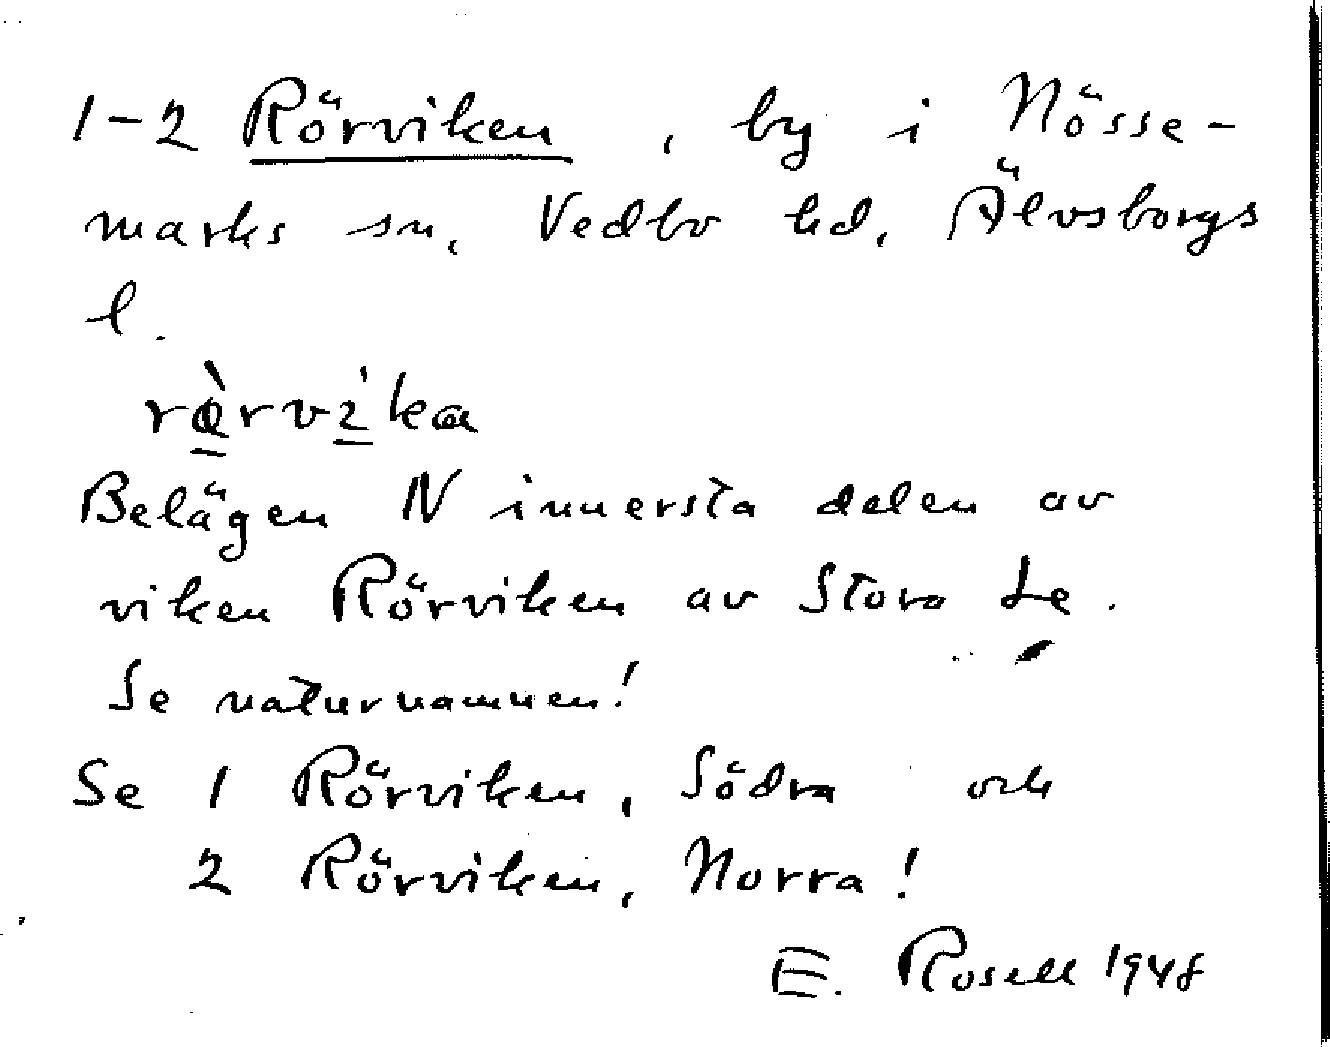 1-2 Rörviken, by i Nösse-
marks sn, Vedbo hd, Älvsborgs
l.
Belägen N innersta delen av
viken Rörviken av Stora Le.
Se naturnamnen!
Se 1 Rörviken, Södra och
2 Rörviken, Norra!
E. Rosell 1948